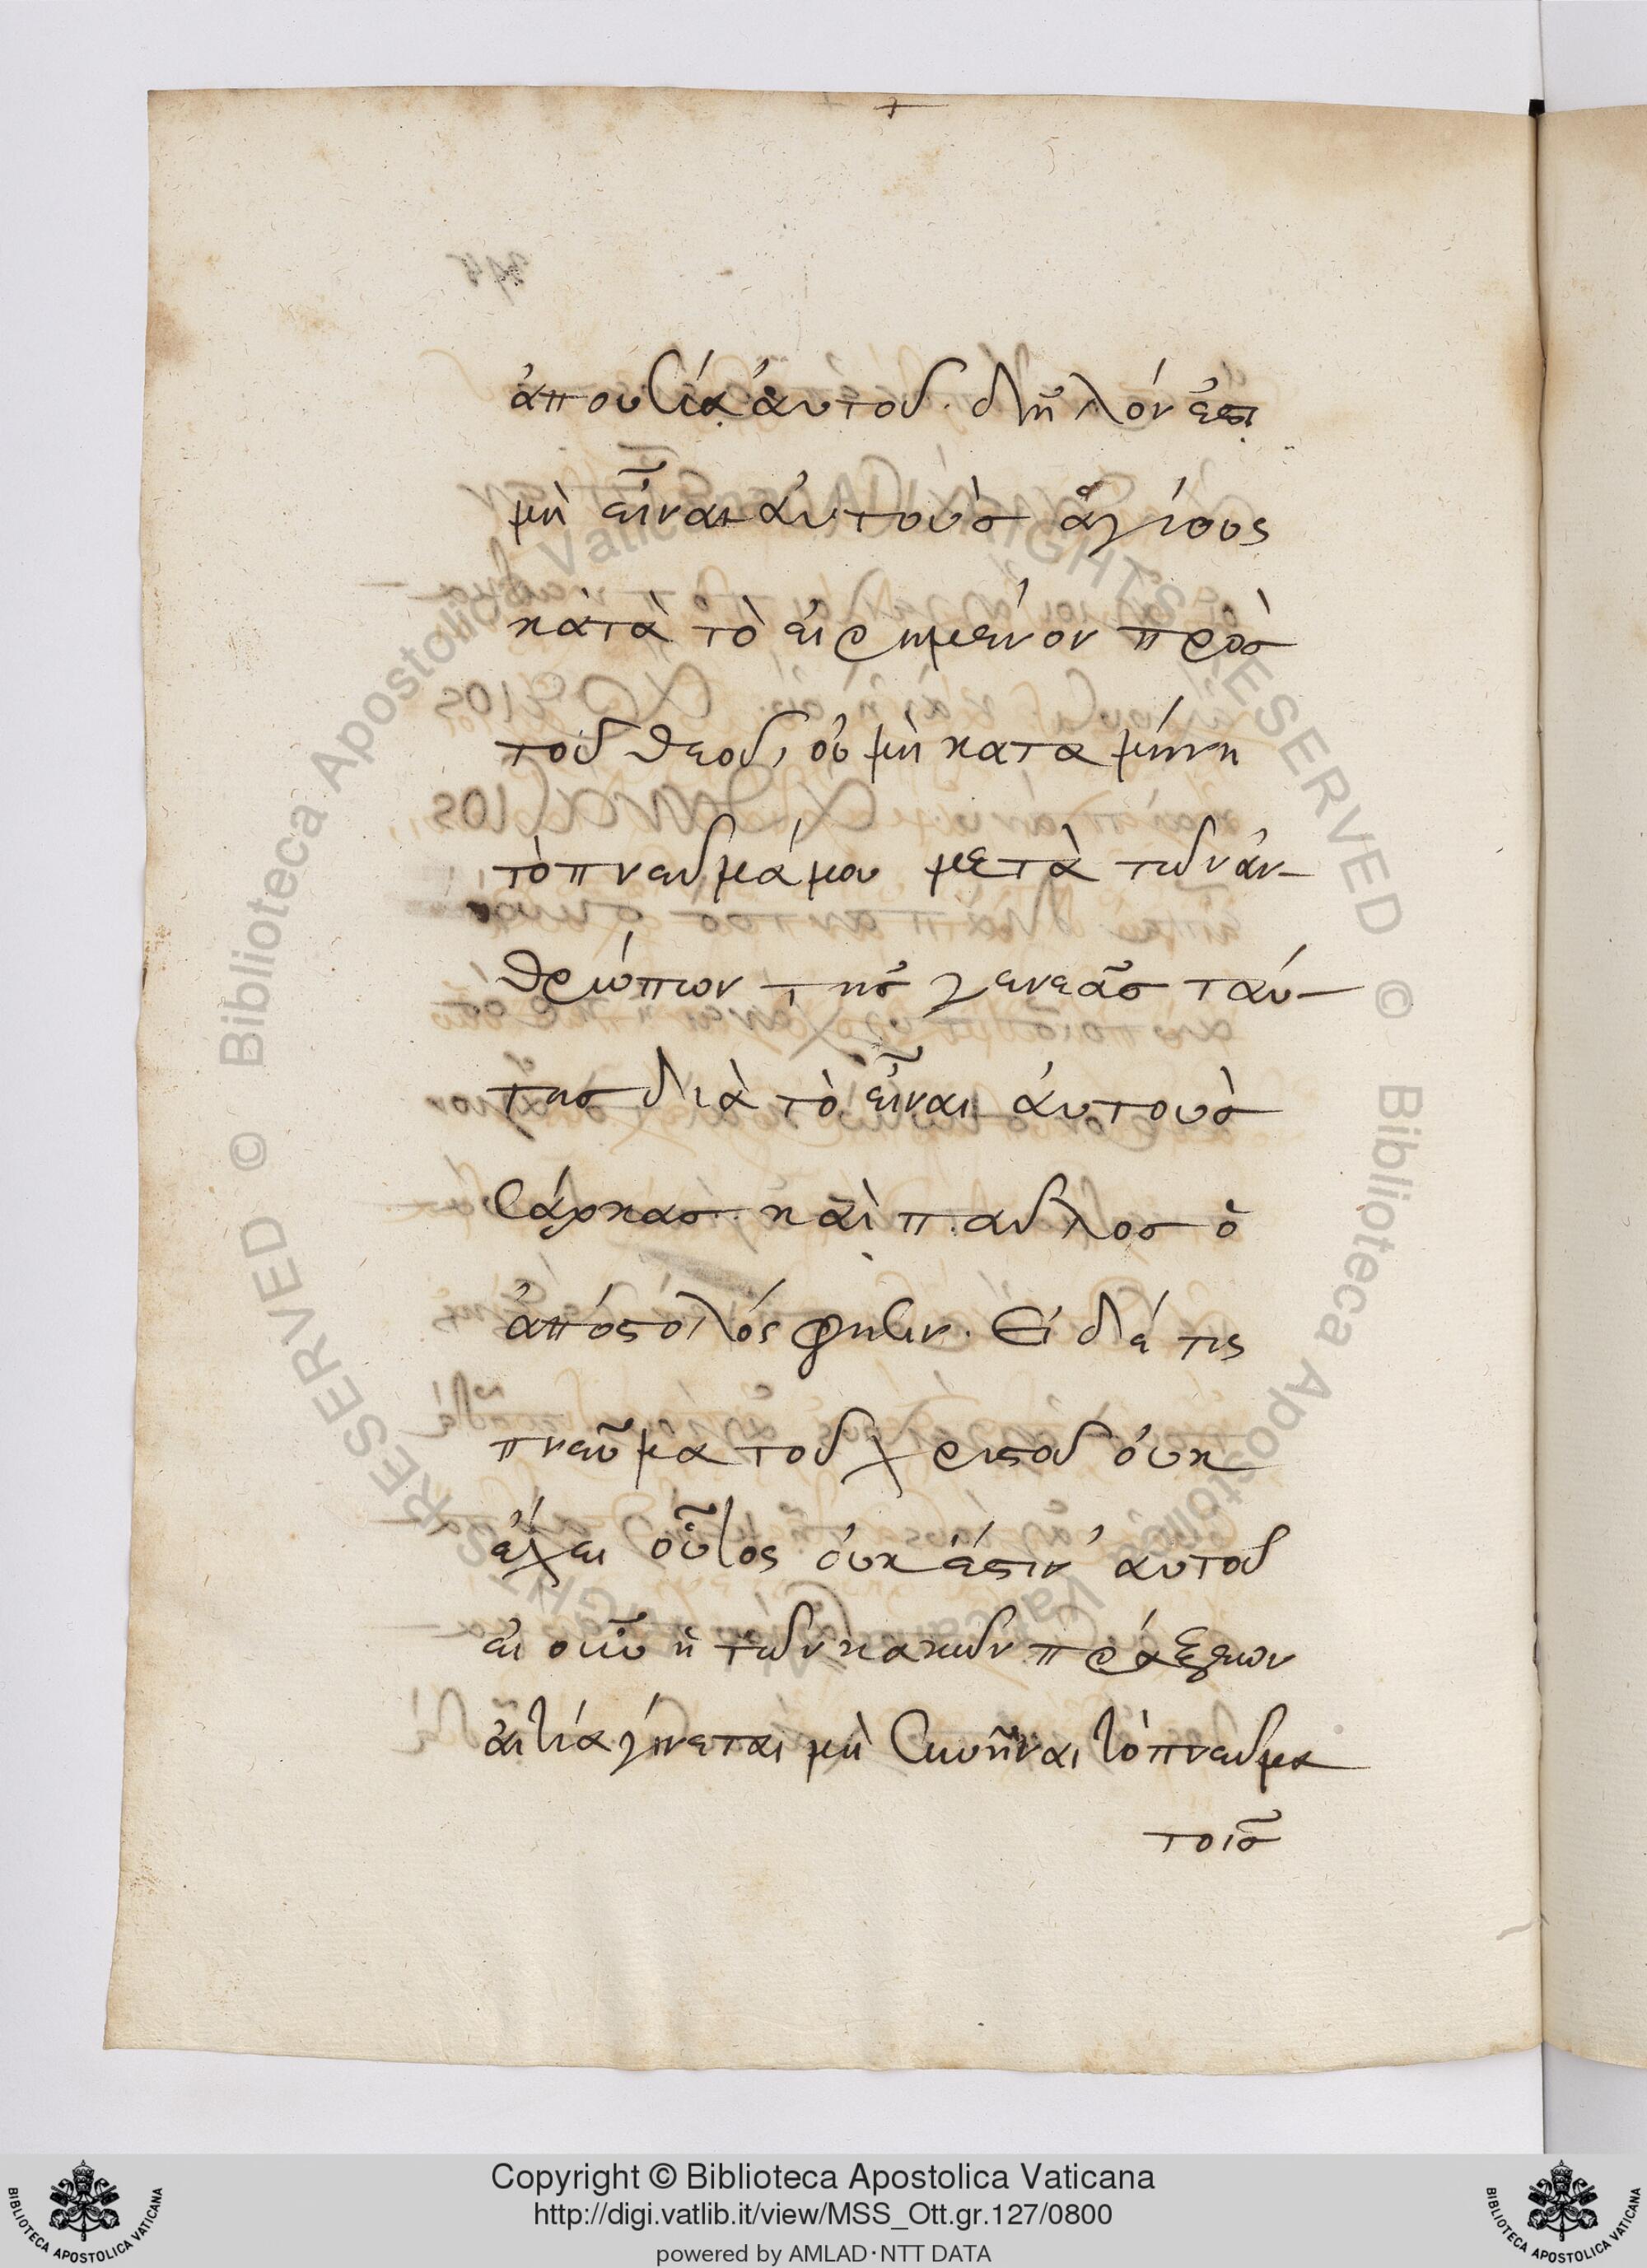 ἀπουσίᾳ αὐτοῦ. δῆλόν ἐστι
μὴ εἶναι αὐτοὺς ἁγίους
κατὰ τὸ εἰρημένον πρὸς
τοῦ θεοῦ, οὐ μὴ καταμήνη
τὸ πνεῦμά μου μετὰ τῶν ἀν-
θρώπων τῆς γενεᾶς ταύ-
της διὰ τὸ εἶναι αὐτοὺς
σάρκας. καὶ παῦλος ὁ
ἀπόστολός φησιν. Εἰ δέ τις
πνεῦμα τοῦ χριστοῦ οὐκ
ἔχει οὗτος οὐκ ἔστιν αὐτοῦ
εἰ οὖν ἡ τῶν κακῶν πράξεων
αἰτία γίνεται μὴ σκηνῆναι τὸ πνεῦμα
τοῖς
© Biblioteca Apostolica Vaticana ALL RIGHTS RESERVED
© Biblioteca Apostolica Vaticana ALL RIGHTS RESERVED
Copyright © Biblioteca Apostolica Vaticana
http://digi.vatlib.it/view/MSS_Ott.gr.127/0800
powered by AMLAD·NTT DATA
BIBLIOTECA APOSTOLICA VATICANA
BIBLIOTECA APOSTOLICA VATICANA